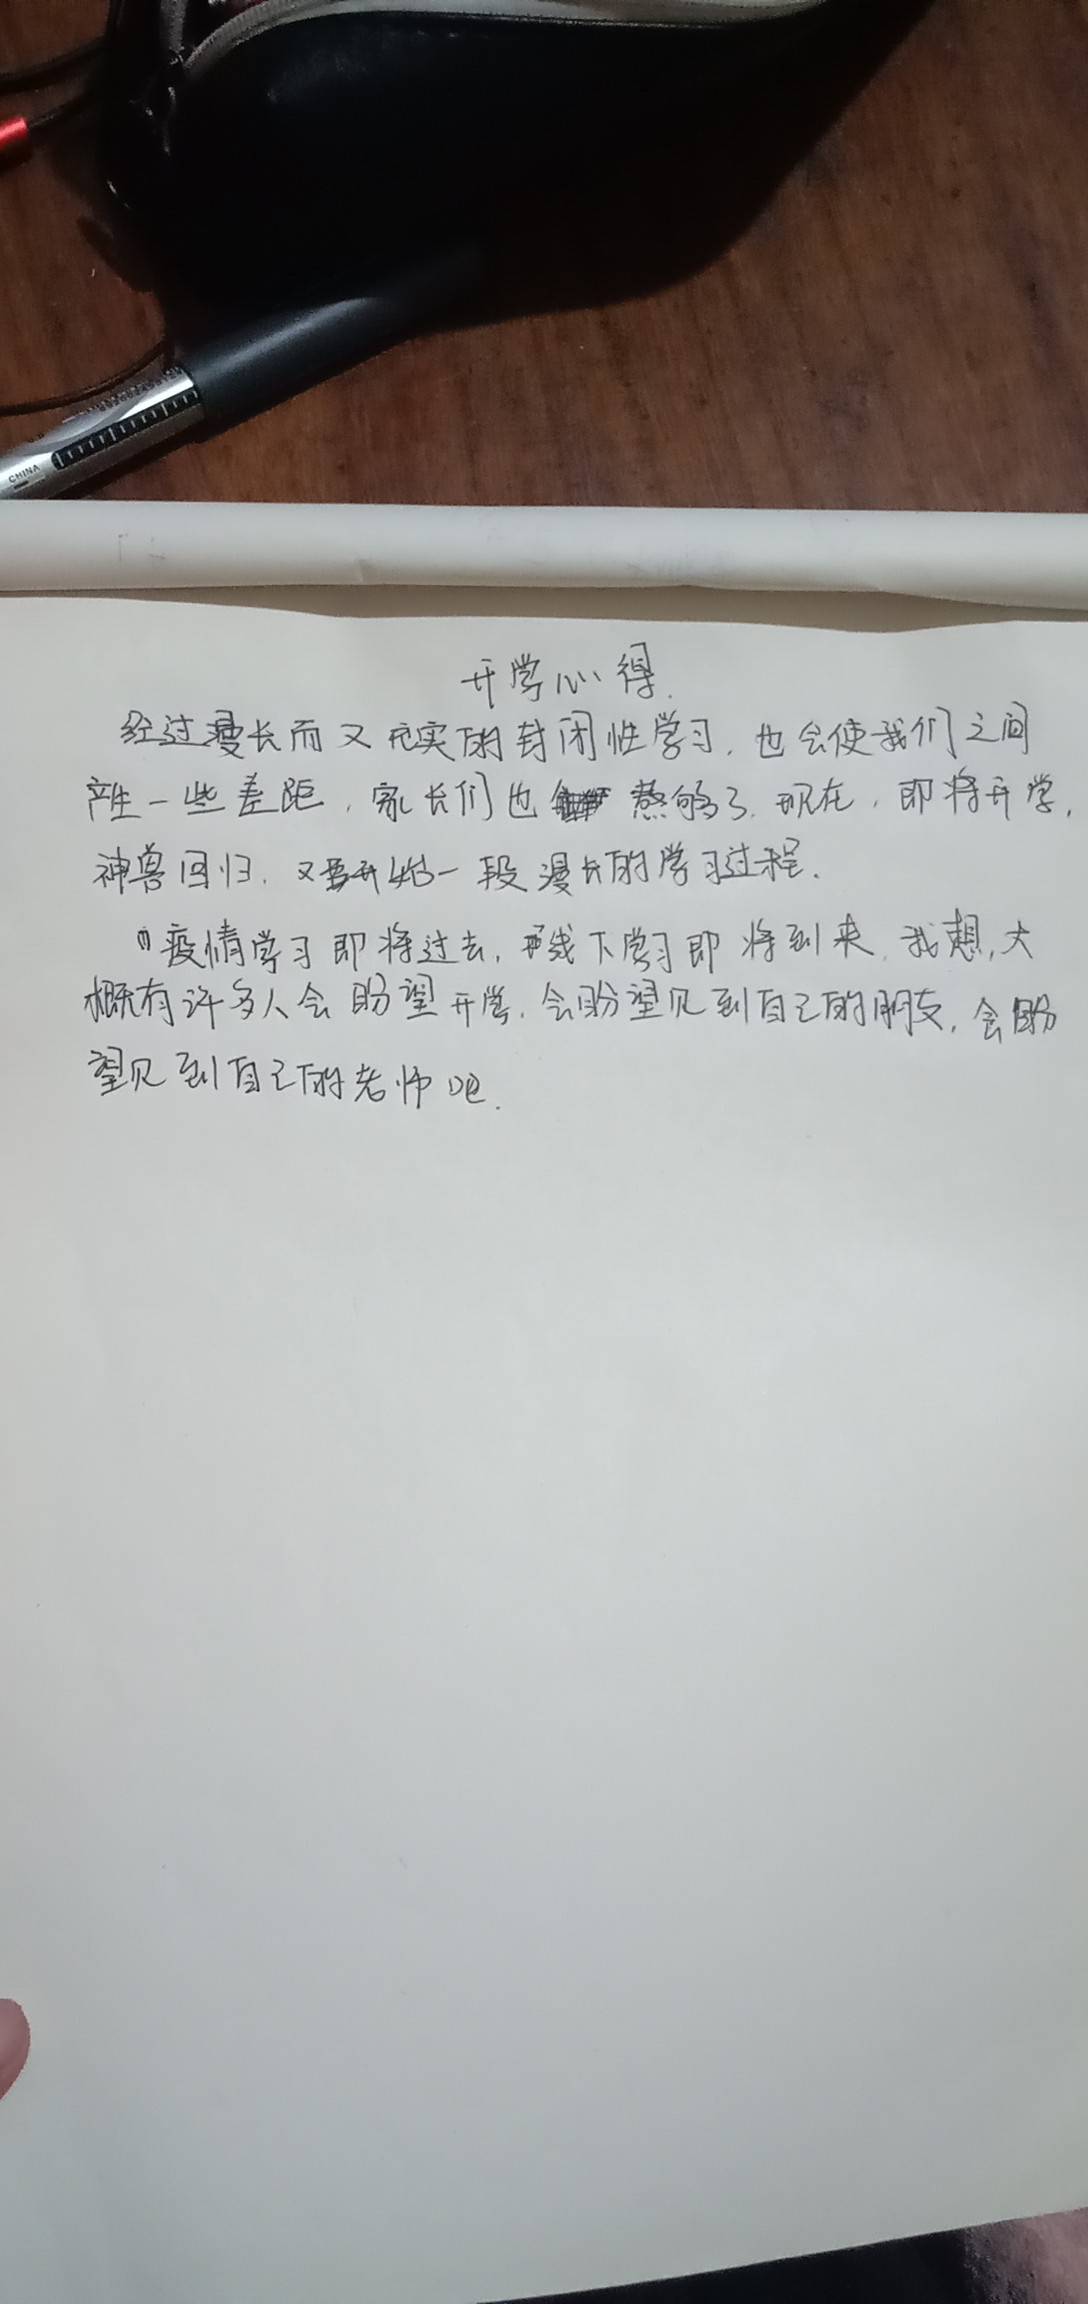 CHINA
开学心得.
经过漫长而又充实的封闭性学习,也会使我们之间
产生一些差距,家长们也熬够了.现在,即将开学,
神兽回归.又要开始一段漫长的学习过程.
疫情学习即将过去,线下学习即将到来.我想,大
概有许多人会盼望开学.会盼望见到自己的朋友,会盼
望见到自己的老师吧.